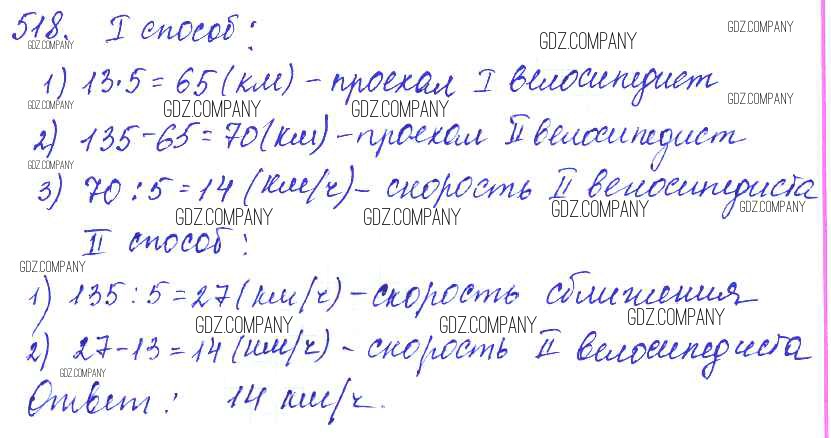 518. I способ:
GDZ.COMPANY GDZ.COMPANY GDZ.COMPANY
1) 13·5 = 65 (км) – проехал I велосипедист
GDZ.COMPANY GDZ.COMPANY GDZ.COMPANY GDZ.COMPANY
2) 135 – 65 = 70 (км) – проехал II велосипедист
GDZ.COMPANY
3) 70 : 5 = 14 (км/ч) – скорость II велосипедиста
GDZ.COMPANY GDZ.COMPANY GDZ.COMPANY GDZ.COMPANY
II способ:
GDZ.COMPANY
1) 135 : 5 = 27 (км/ч) – скорость сближения
GDZ.COMPANY GDZ.COMPANY GDZ.COMPANY
2) 27 – 13 = 14 (км/ч) – скорость II велосипедиста
GDZ.COMPANY
Ответ: 14 км/ч.